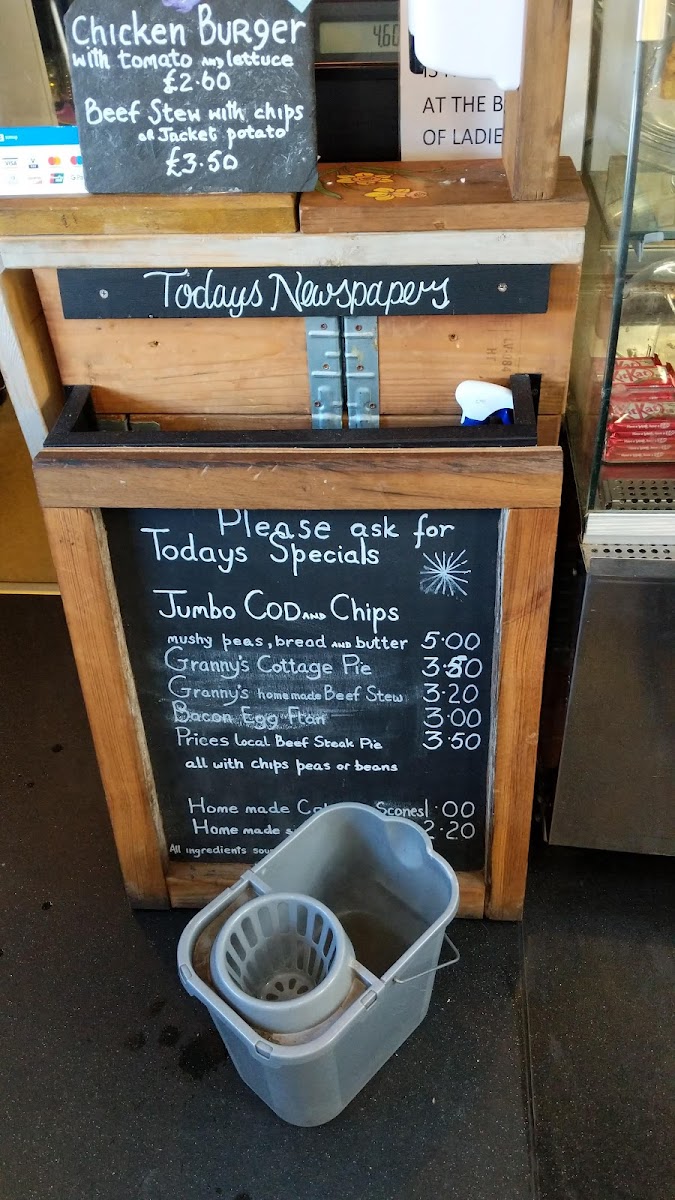 Chicken Burger
with tomato AND lettuce
£2.60
Beef Stew with chips
OR Jacket potato
£3.50
4.60
VISA
AT THE B
OF LADIE
Todays Newspapers
KitKat
Please ask for
Todays Specials
Jumbo COD AND Chips
mushy peas, bread AND butter 5.00
Granny's Cottage Pie 3.50
Granny's home made Beef Stew 3.20
Bacon Egg Flan 3.00
Prices local Beef Steak Pie 3.50
all with chips peas or beans
Home made Scones 1.00
Home made 2.20
All ingredients